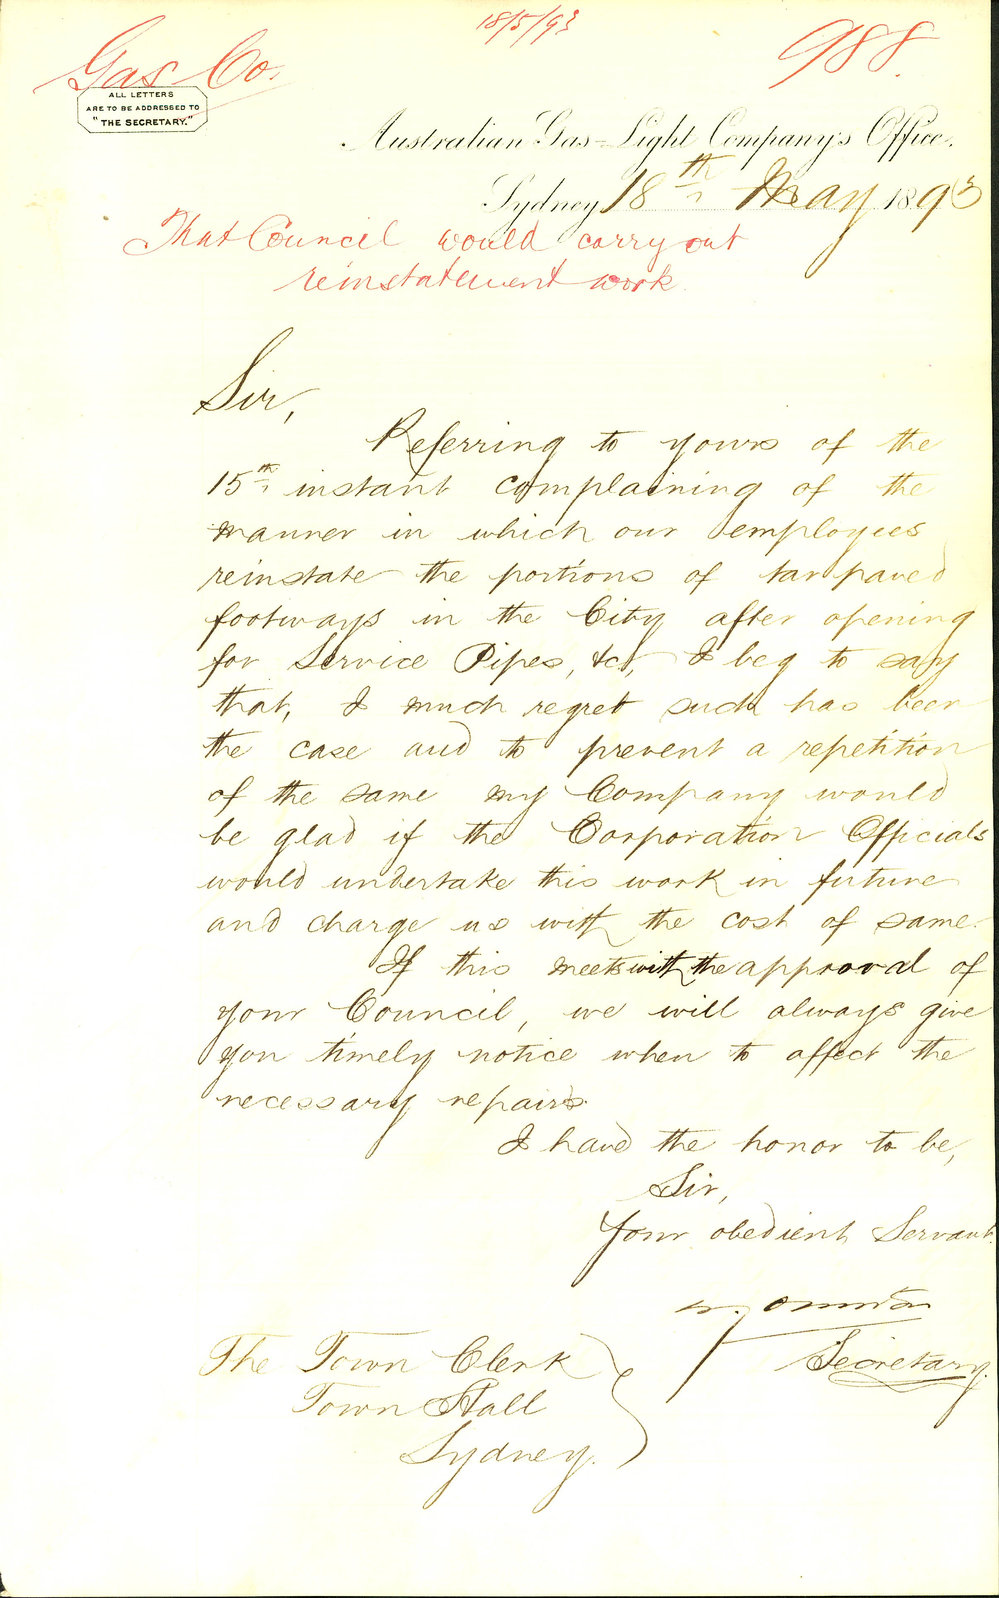 18/5/93
988.
Gas Co.
ALL LETTERS
ARE TO BE ADDRESSED TO
"THE SECRETARY."
Australian Gas-Light Company's Office,
Sydney 18th May 1893
That Council would carry out
reinstatement work.
Sir,
Referring to yours of the
15th instant complaining of the
manner in which our employees
reinstate the portions of tar paved
footways in the City after opening
for Service Pipes, &c, I beg to say
that, I much regret such has been
the case and to prevent a repetition
of the same my Company would
be glad if the Corporation Officials
would undertake this work in future
and charge us with the cost of same.
If this meets with the approval of
your Council, we will always give
you timely notice when to affect the
necessary repairs.
I have the honor to be,
Sir,
Your obedient Servant.
Secretary.
The Town Clerk
Town Hall
Sydney.